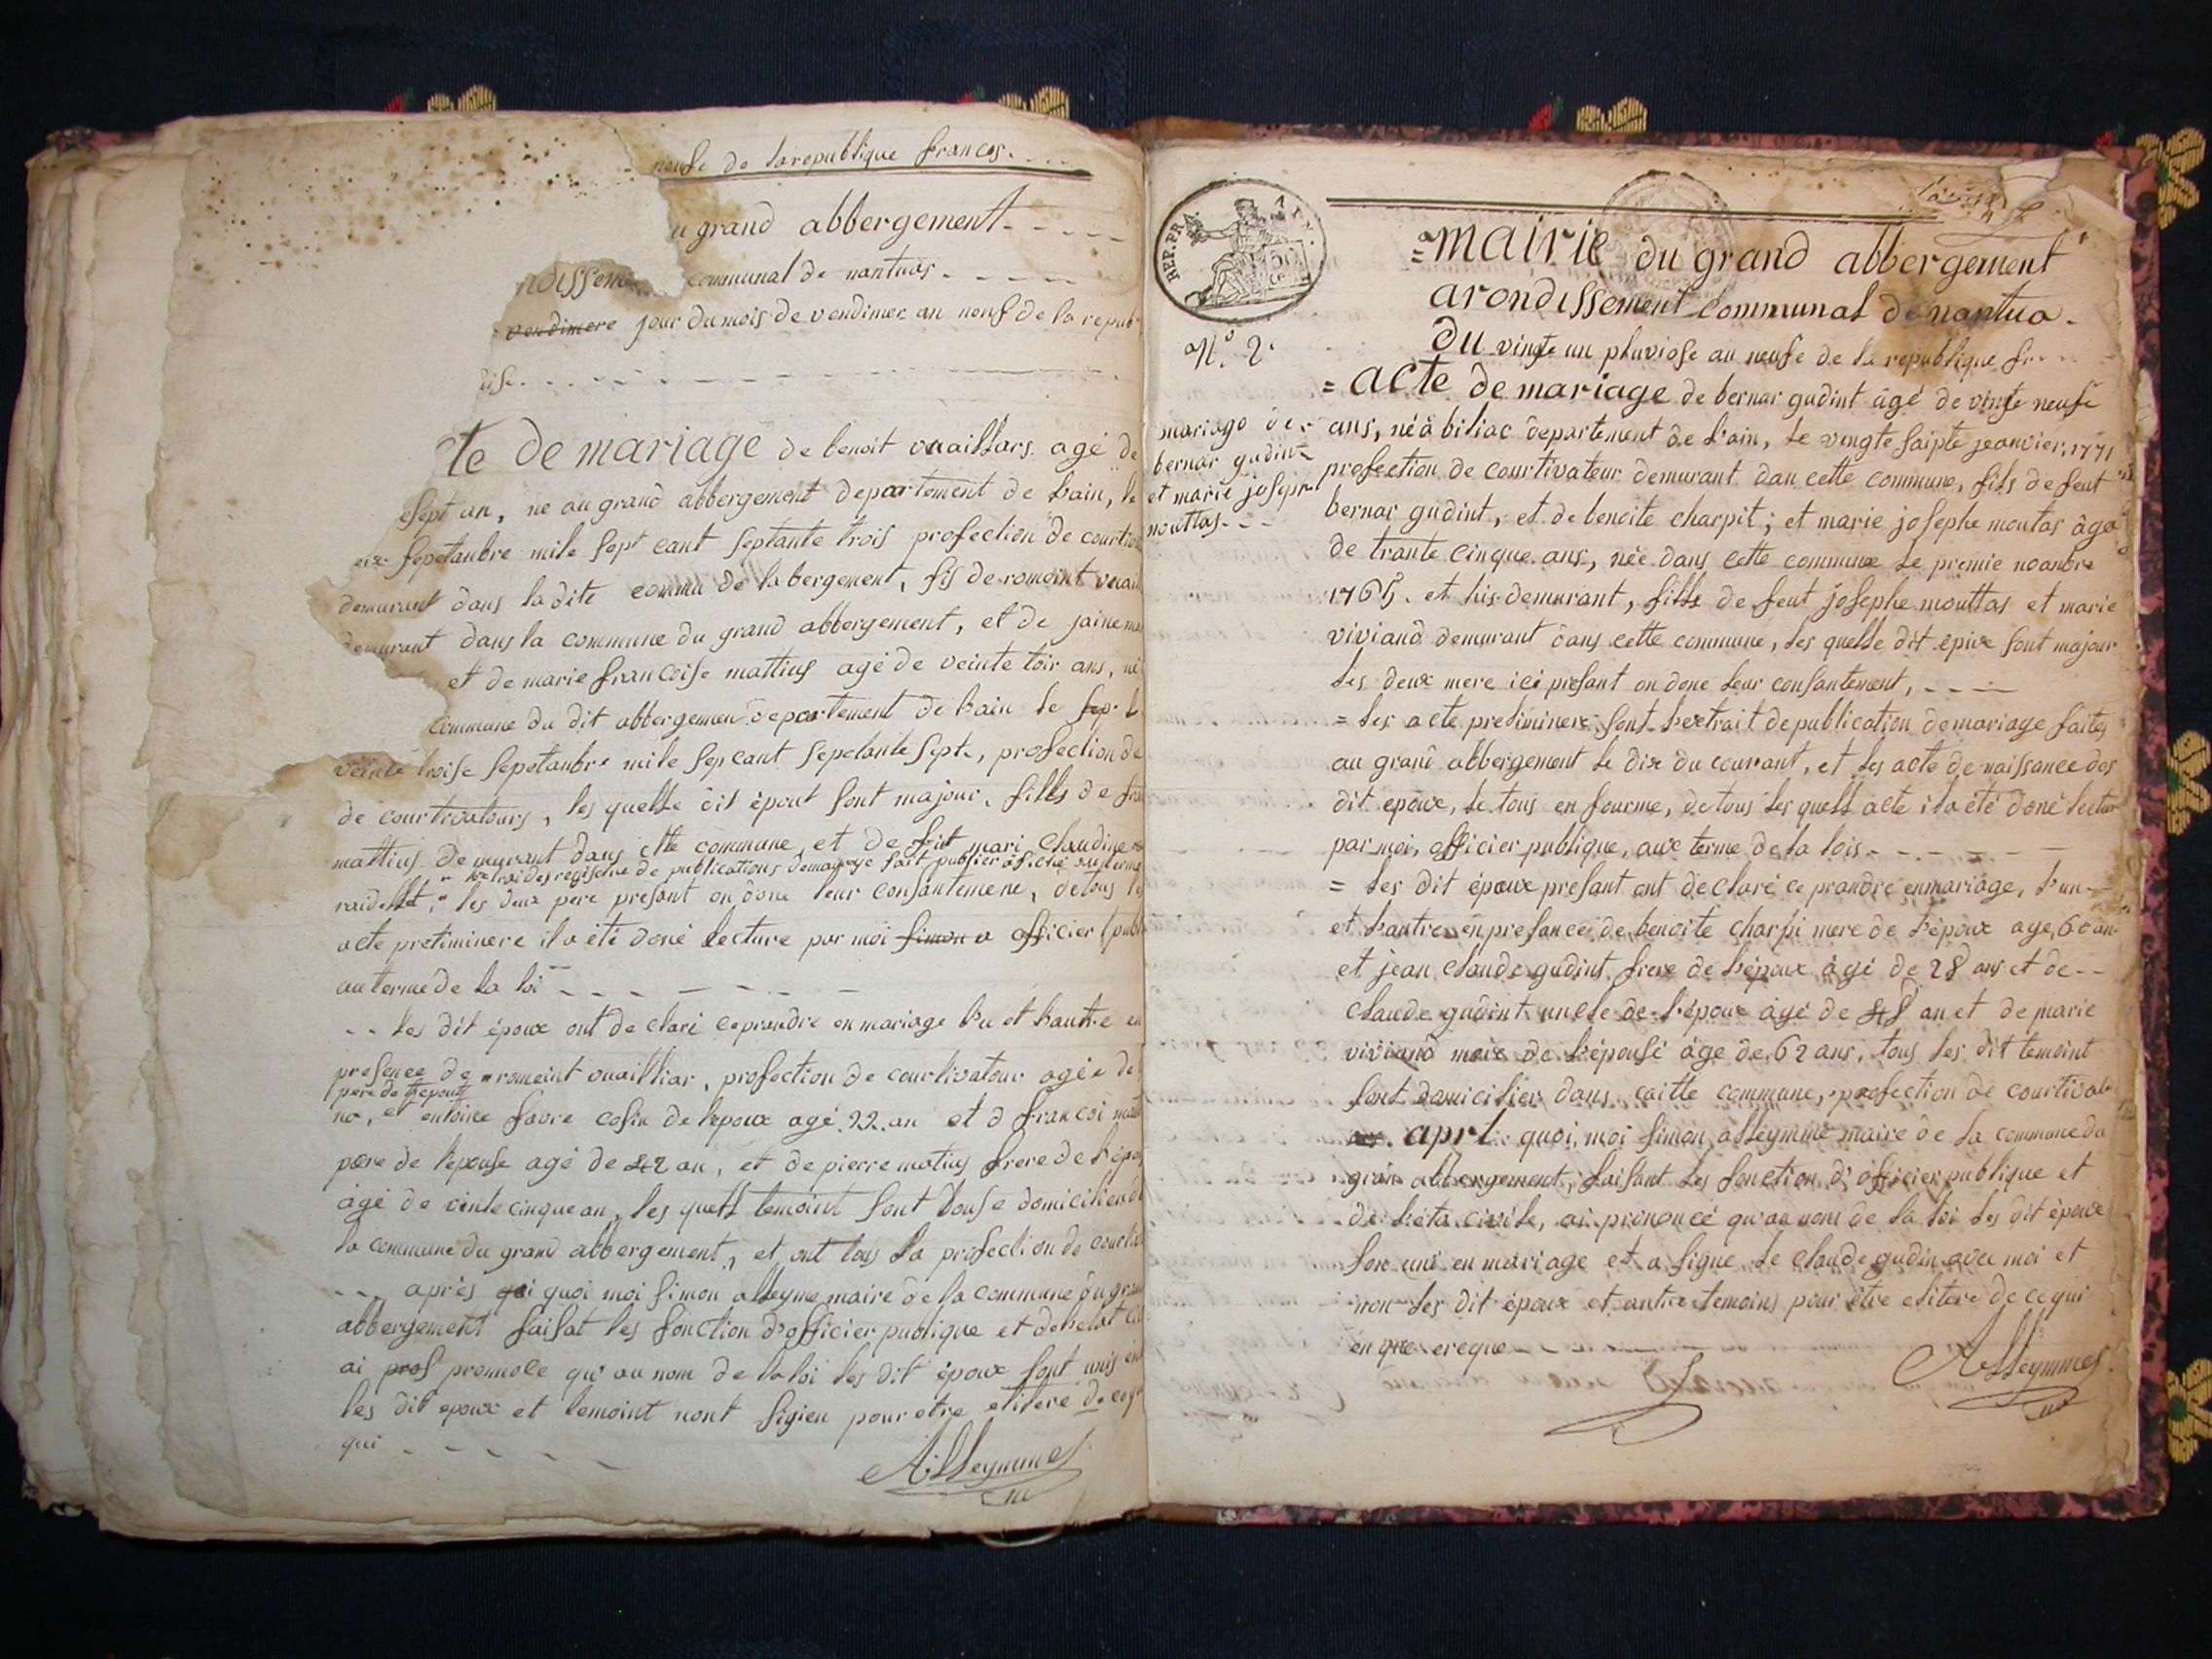 neufe de la republique frances.
u grand abbergement
ndisseme communal de nantuas
vendimere jour du mois de vendimer an neuf de la repub
te de mariage de benoit vuaillars agé de
sept an, ne au grand abbergement departement de lain, le
sepetanbre mile sept cant septante trois profection de courtiv
demurant dans la dite commu de labergement, fis de romoint vuail
demurant dans la commune du grand abbergement, et de jaine
et de marie francoise mattius agé de veinte toir ans, né
commune du dit abbergemen departement de lain le sep
veinte troise sepetanbre mile sep cant sepetante sept, profection de
de courtivatours, les quelle dit épout sont majour, fills de
mattius demurant dans cette commune, et de feut mari claudine
de publications
raidellet, les deux pere presant on done leur consantemene, de tous le
acte preliminere il a été doné lecture par moi simon a officier publ
au terme de la loi
les dit époux ont de clari ce prandre en mariage lu et lautre en
presence de romeint vuailliar, profection de courtivatour agée de
pere de l'epout
no, et entoine favre cosin de lepoux agé 22 an et d francoi mat
pere de lepouse agé de 42 an, et de pierre matius frere de lépou
âgé de vinte cinque an, les quell temoint sont tous domicilien d
la commune du grand abbergement, et ont tous la profection de court
après qui quoi moi simon alleyme maire de la commune du gran
abbergement faisat les fonction d'officier publique et de letat
ai prof pronnole qu'au nom de la loi les dit époux sont unis en
les dit époux et temoint nont signeu pour etre elitere de ce
qui
Alleymmes
REP. FRA.
= mairie du grand abbergement
arondissement communal de nantua
N.° 2.
Du vingte un pluviose an neufe de la republique fr
= acte de mariage de bernar gudint âgé de vinte neufe
mariage de
bernar gudint
et marie josephe
mouttas
ans, né à biliac departement de l'ain, le vingte saipte jeanvier, 1771
profection de courtivateur demurant dan cette commune, fils de feut
bernar gudint, et de benoite charpit; et marie josephe moutas âge
de trante cinque ans, née dans cette commune le premie noanbre
1765. et his demurant, fills de feut josephe mouttas et marie
viviand demurant dans cette commune, les quelle dit epoux sont majour
les deux mere ici presant on done leur consantement,
= les acte preliminere sont lextrait de publication de mariage faites
au grand abbergement le dix du courant, et les acte de naissance des
dit epoux, le tous en fourme, de tous les quell acte il a été doné lectur
par moi, officier publique, aux terme de la lois
= les dit époux présant ont declaré ce prandre en mariage, l'un
et lautre en presance de benoite charpi mere de lépoux age, 60 an
et jean claude gudint frere de lépoux âgé de 28 ans et de
claude gudint uncle de lépoux âgé de 48 an et de marie
viviand mere de lépouse âge de, 62 ans, tous les dit temoint
sont domicilier dans caitte commune, profection de courtivat
aprt quoi, moi simon alleymme maire de la commune du
grand abbergement, faisant les fonction d'officier publique et
de léta civile, ai prononcé qu'au nom de la loi les dit époux
son uni en mariage et a signe le claude gudin avec moi et
non les dit époux et autre temoins pour étre elitere de ce qui
en que ereque
Alleymmes